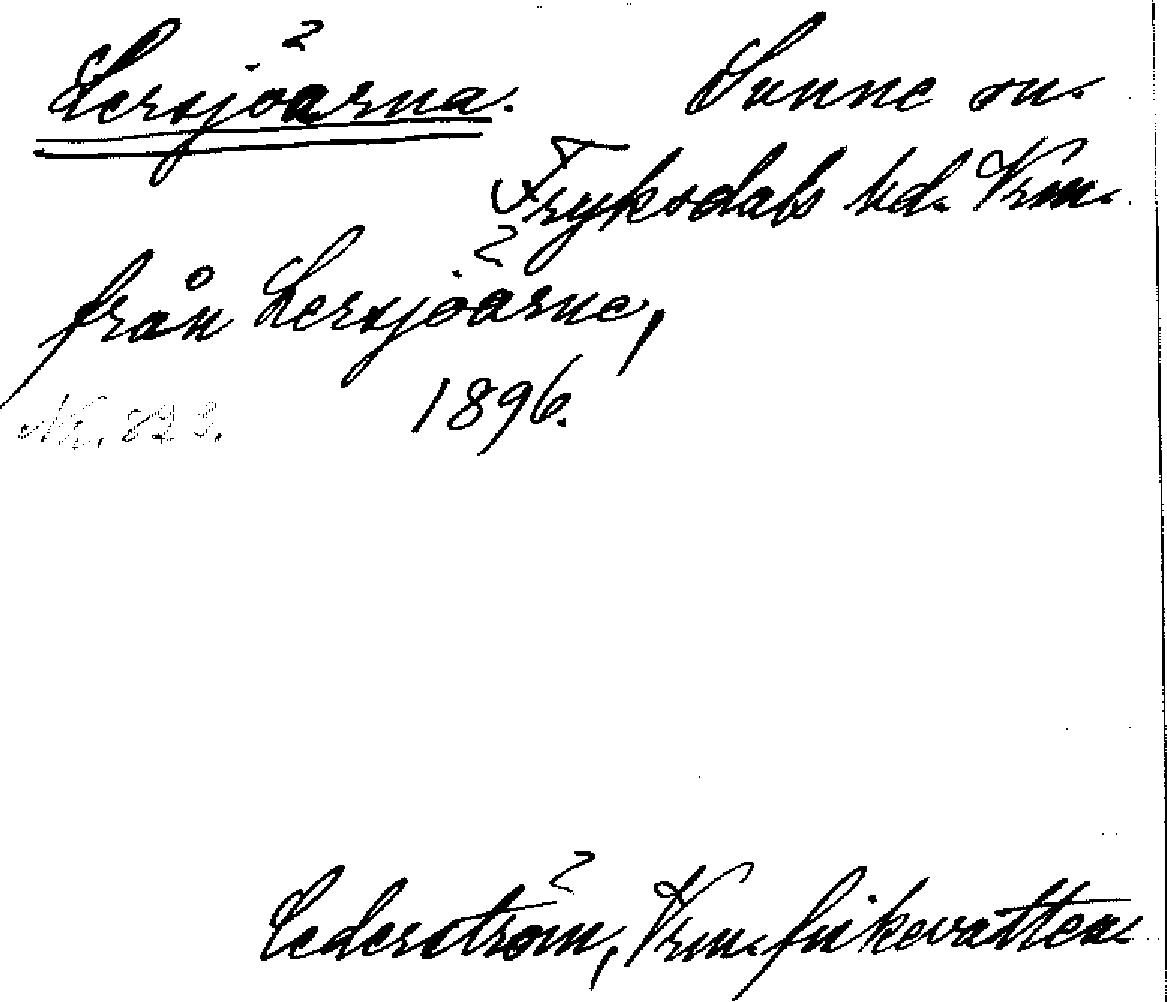 Lersjöarna. Sunne sn.
Fryksdals hd. Vrm.
från Lersjöarne,
1896.
Nr. 823.
Cederström, Vrm. fiskevatten.